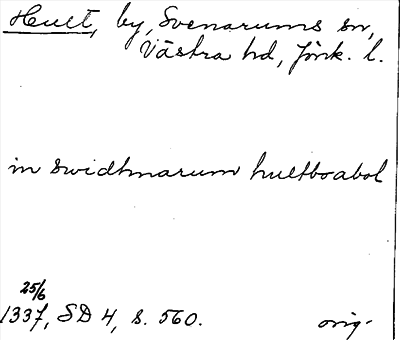 Hult, by, Svenarums sn,
Västra hd, Jönk. l.
in swidhnarum hultboabol
25/6
1337, SD 4, s. 560.
orig.